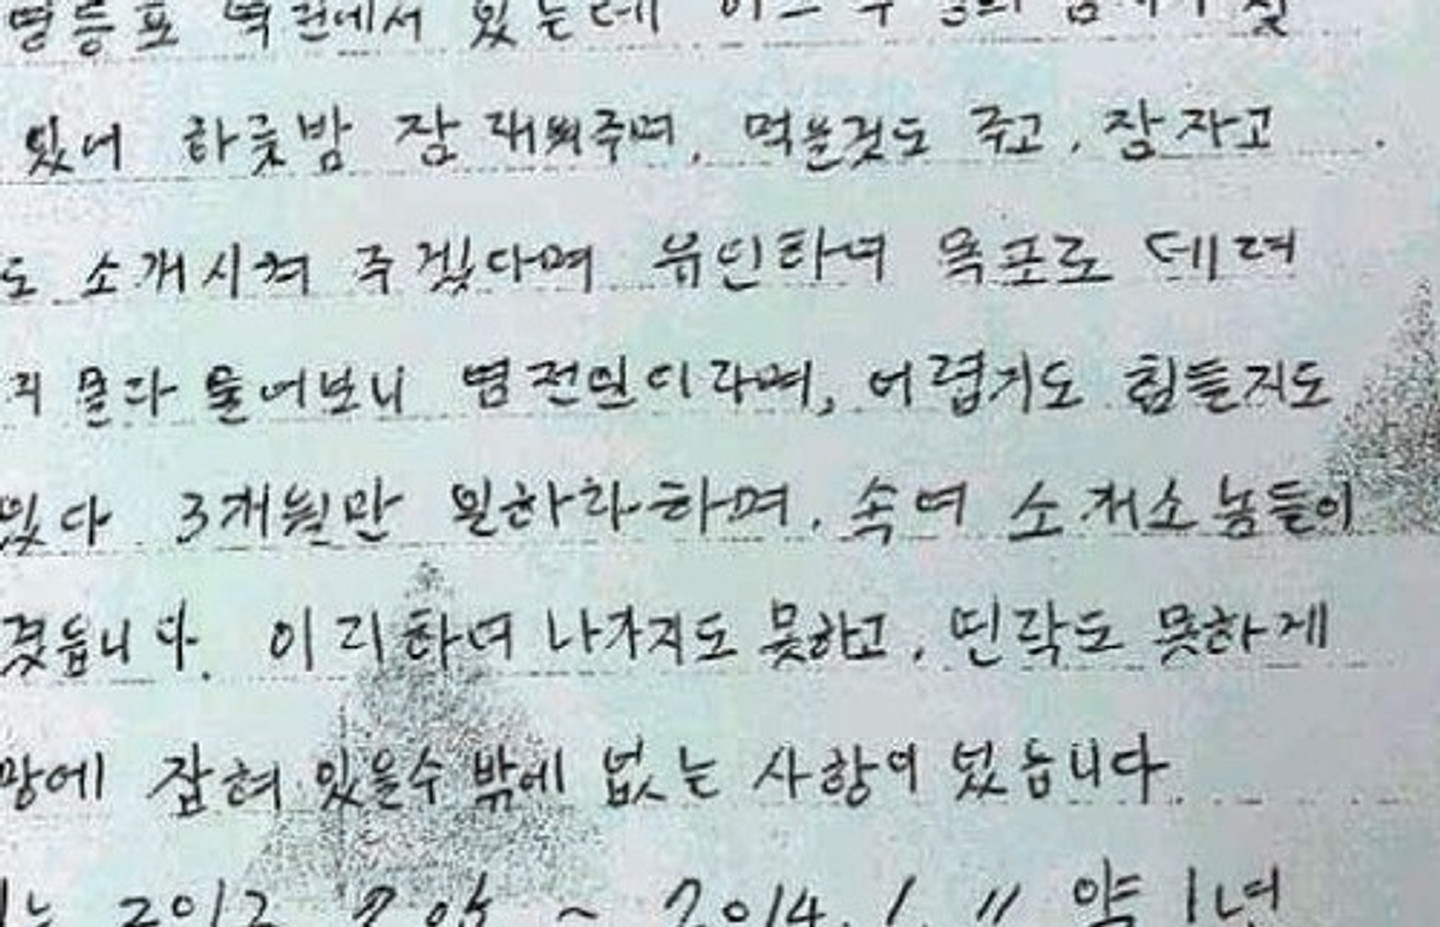 영등포 역전에서 있는데
있어 하룻밤 잠 재워주며, 먹을것도 주고, 잠자고
도 소개시켜 주겠다며 유인하여 목포로 데려
물어보니 염전일이라며, 어렵지도 힘들지도
있다 3개월만 일하라 하며, 속여 소개소 놈들이
겼습니다. 이리하여 나가지도 못하고, 연락도 못하게
망에 잡혀 있을수 밖에 없는 사항이 었습니다.
는 2012 ~ 2014. 1. 11 약 1년